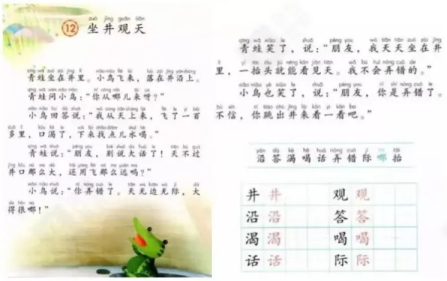 12 坐井观天
青蛙坐在井里。小鸟飞来，落在井沿上。
青蛙问小鸟：“你从哪儿来呀？”
小鸟回答说：“我从天上来，飞了一百
多里，口渴了，下来找点儿水喝。”
青蛙说：“朋友，别说大话了！天不过
井口那么大，还用飞那么远吗？”
小鸟说：“你弄错了。天无边无际，大
得很哪！”
青蛙笑了，说：“朋友，我天天坐在井
里，一抬头就能看见天。我不会弄错的。”
小鸟也笑了，说：“朋友，你是弄错了。
不信，你跳出井来看一看吧。”
沿答渴喝话弄错际哪抬
井 井 观 观
沿 沿 答 答
渴 渴 喝 喝
话 话 际 际